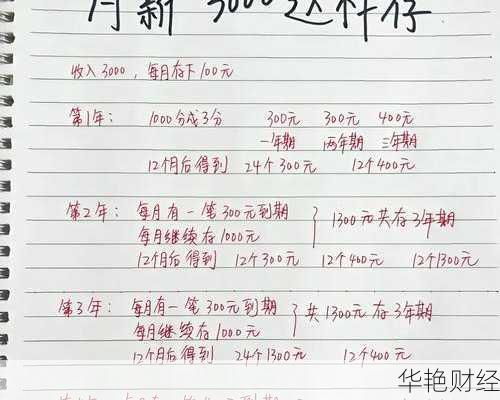 月薪3000这样存
收入3000，每月存下100元
第1年： 1000分成3分 300元 300元 400元
一年期 两年期 三年期
12个月后得到 24个300元 12个400元
第2年： 每月有一笔300元到期
1300元共存3年期
每月继续存1000元
12个月后得到 12个300元 12个400元 12个1300元
第3年： 每月有一笔300元到期
共1300元存3年期
每月继续存1000元
12个月后得到 24个1300元 12个400元
华艳财经